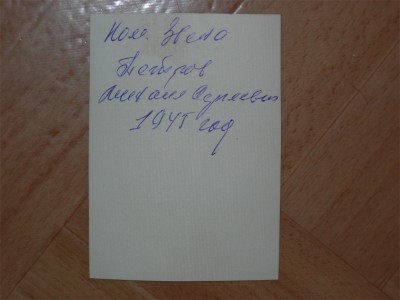 Ком. Звено
Петров
Михаил Сергеевич
1945 год